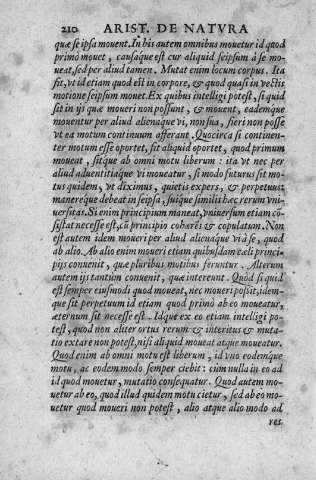 210 ARIST. DE NATVRA
quæ se ipsa mouent. In his autem omnibus mouetur id quod
primò mouet, causaque est cur aliquid seipsum à se mo-
ueat, sed per aliud tamen. Mutat enim locum corpus. Ita
fit, vt id etiam quod est in corpore, & quod quasi in vectis
motione seipsum mouet. Ex quibus intelligi potest, si quid
sit in ijs quæ moueri non possunt, & mouent, eademque
mouentur per aliud alienaque vi, non sua, fieri non posse
vt ea motum continuum afferant. Quocirca si continen-
ter motum esse oportet, sit aliquid oportet, quod primum
moueat, sitque ab omni motu liberum: ita vt nec per
aliud aduentitiaque vi moueatur, si modo futurus sit mo-
tus quidem, vt diximus, quietis expers, & perpetuus:
manereque debeat in seipsa, suique similis hæc rerum vni-
uersitas. Si enim principium maneat, vniuersum etiam co-
sistat necesse est, cū principio cohæres & copulatum. Non
est autem idem moueri per aliud alienaque vi à se, quod
ab alio. Ab alio enim moueri etiam quibusdam cæli princi-
pijs conuenit, quæ pluribus motibus feruntur. Alterum
autem ijs tantùm conuenit, quæ intereunt. Quòd si quid
est semper eiusmodi quod moueat, nec moueri possit, idem-
que sit perpetuum id etiam quod primò ab eo moueatur,
æternum sit necesse est. Idque ex eo etiam intelligi po-
test, quod non aliter ortus rerum & interitus & muta-
tio extare non potest, nisi aliquid moueat atque moueatur.
Quod enim ab omni motu est liberum, id vno eodemque
motu, ac eodem modo semper ciebit: cùm nulla in eo ad
id quod mouetur, mutatio consequatur. Quod autem mo-
uetur ab eo, quod illud quidem motu cietur, sed ab eo mo-
uetur quod moueri non potest, alio atque alio modo ad
res